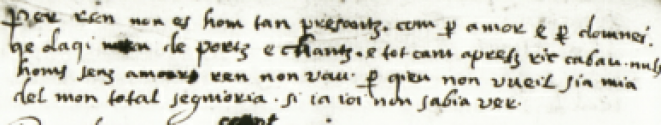 Per ren non es hom tan presantz. com p amor e p domnei.
qe daqi men de portz e chantz. e tot cant apres ric cabau. nuls
homs senz amor ren non vau. p qeu non vueil sia mia
del mon total segnioria. si ia ioi non sabia ver.